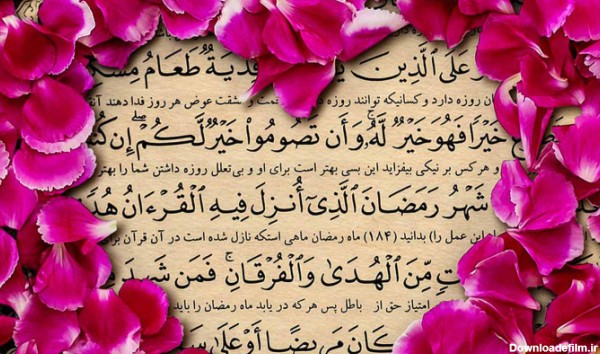 عَلَى ٱلَّذِينَ فِدْيَةٌ طَعَامُ
روزه دارد و کسانیکه توانند روزه و مشقت عوض هر روز فدا دهند
خَيْرًا فَهُوَ خَيْرٌ لَّهُۥ وَأَن تَصُومُوا۟ خَيْرٌ لَّكُمْ ۖ إِن
و هر کس بر نیکی بیفزاید این بسی بهتر است برای او و بی‌تعلل روزه داشتن شما را بهتر
شَهْرُ رَمَضَانَ ٱلَّذِىٓ أُنزِلَ فِيهِ ٱلْقُرْءَانُ
این عمل را) بدانید (۱۸۴) ماه رمضان ماهی استکه نازل شده است در آن قرآن
مِّنَ ٱلْهُدَىٰ وَٱلْفُرْقَانِ ۚ فَمَن شَهِدَ
امتیاز حق از باطل پس هر که در یابد ماه رمضان را باید
كَانَ مَرِيضًا أَوْ عَلَىٰ
Downloadefilm.ir